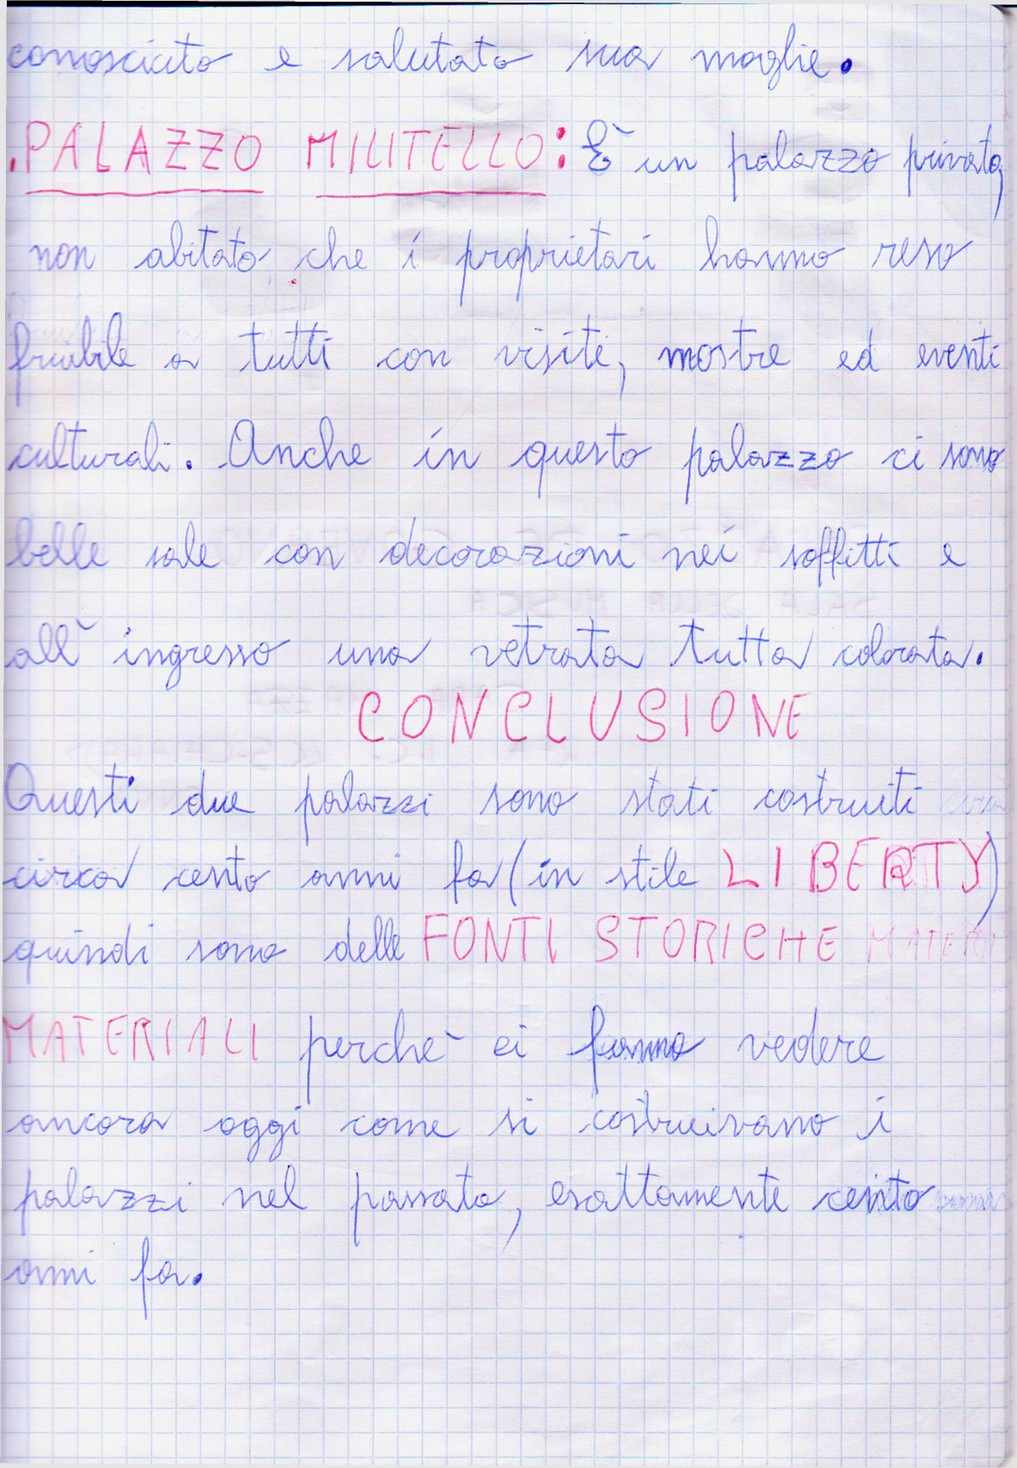 conosciuto e salutato sua moglie.
.PALAZZO MILITELLO: È un palazzo privato,
non abitato che i proprietari hanno reso
fruibile a tutti con visite, mostre ed eventi
culturali. Anche in questo palazzo ci sono
belle sale con decorazioni nei soffitti e
all'ingresso una vetrata tutta colorata.
CONCLUSIONE
Questi due palazzi sono stati costruiti
circa cento anni fa (in stile LIBERTY)
quindi sono delle FONTI STORICHE MATERI
MATERIALI perchè ci fanno vedere
ancora oggi come si costruivano i
palazzi nel passato, esattamente cento
anni fa.